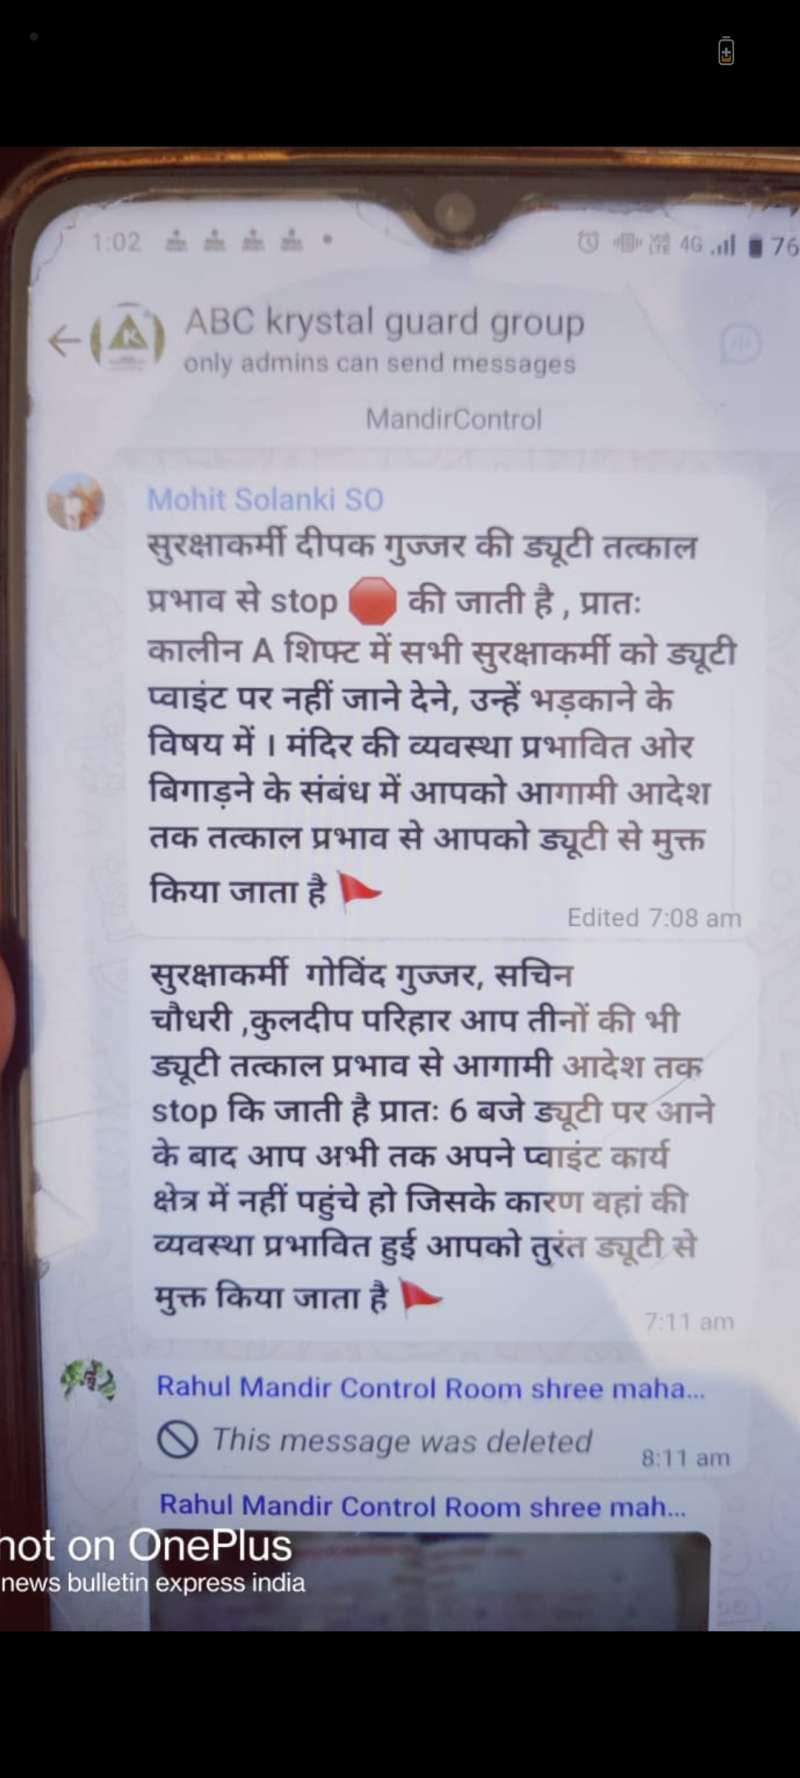 1:02
4G
76
ABC krystal guard group
only admins can send messages
MandirControl
Mohit Solanki SO
सुरक्षाकर्मी दीपक गुज्जर की ड्यूटी तत्काल
प्रभाव से stop 🛑 की जाती है , प्रातः
कालीन A शिफ्ट में सभी सुरक्षाकर्मी को ड्यूटी
प्वाइंट पर नहीं जाने देने, उन्हें भड़काने के
विषय में । मंदिर की व्यवस्था प्रभावित ओर
बिगाड़ने के संबंध में आपको आगामी आदेश
तक तत्काल प्रभाव से आपको ड्यूटी से मुक्त
किया जाता है 🚩
Edited 7:08 am
सुरक्षाकर्मी गोविंद गुज्जर, सचिन
चौधरी ,कुलदीप परिहार आप तीनों की भी
ड्यूटी तत्काल प्रभाव से आगामी आदेश तक
stop कि जाती है प्रातः 6 बजे ड्यूटी पर आने
के बाद आप अभी तक अपने प्वाइंट कार्य
क्षेत्र में नहीं पहुंचे हो जिसके कारण वहां की
व्यवस्था प्रभावित हुई आपको तुरंत ड्यूटी से
मुक्त किया जाता है 🚩
7:11 am
Rahul Mandir Control Room shree maha...
This message was deleted
8:11 am
Rahul Mandir Control Room shree mah...
hot on OnePlus
news bulletin express india